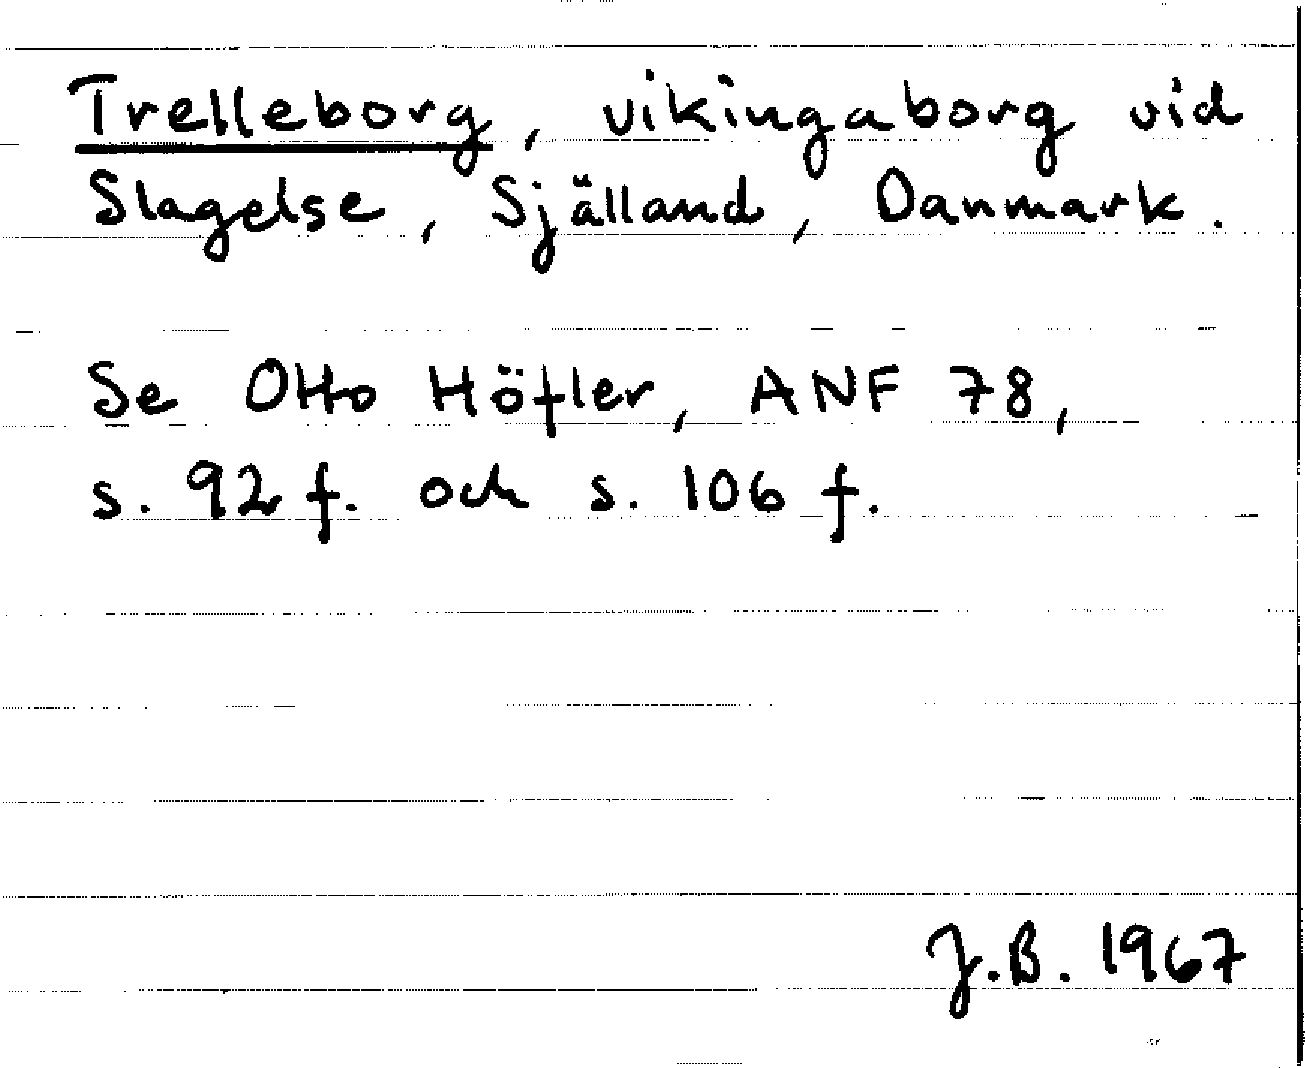 Trelleborg, vikingaborg vid
Slagelse, Själland, Danmark.
Se Otto Höfler, ANF 78,
s. 92 f. och s. 106 f.
J.B. 1967